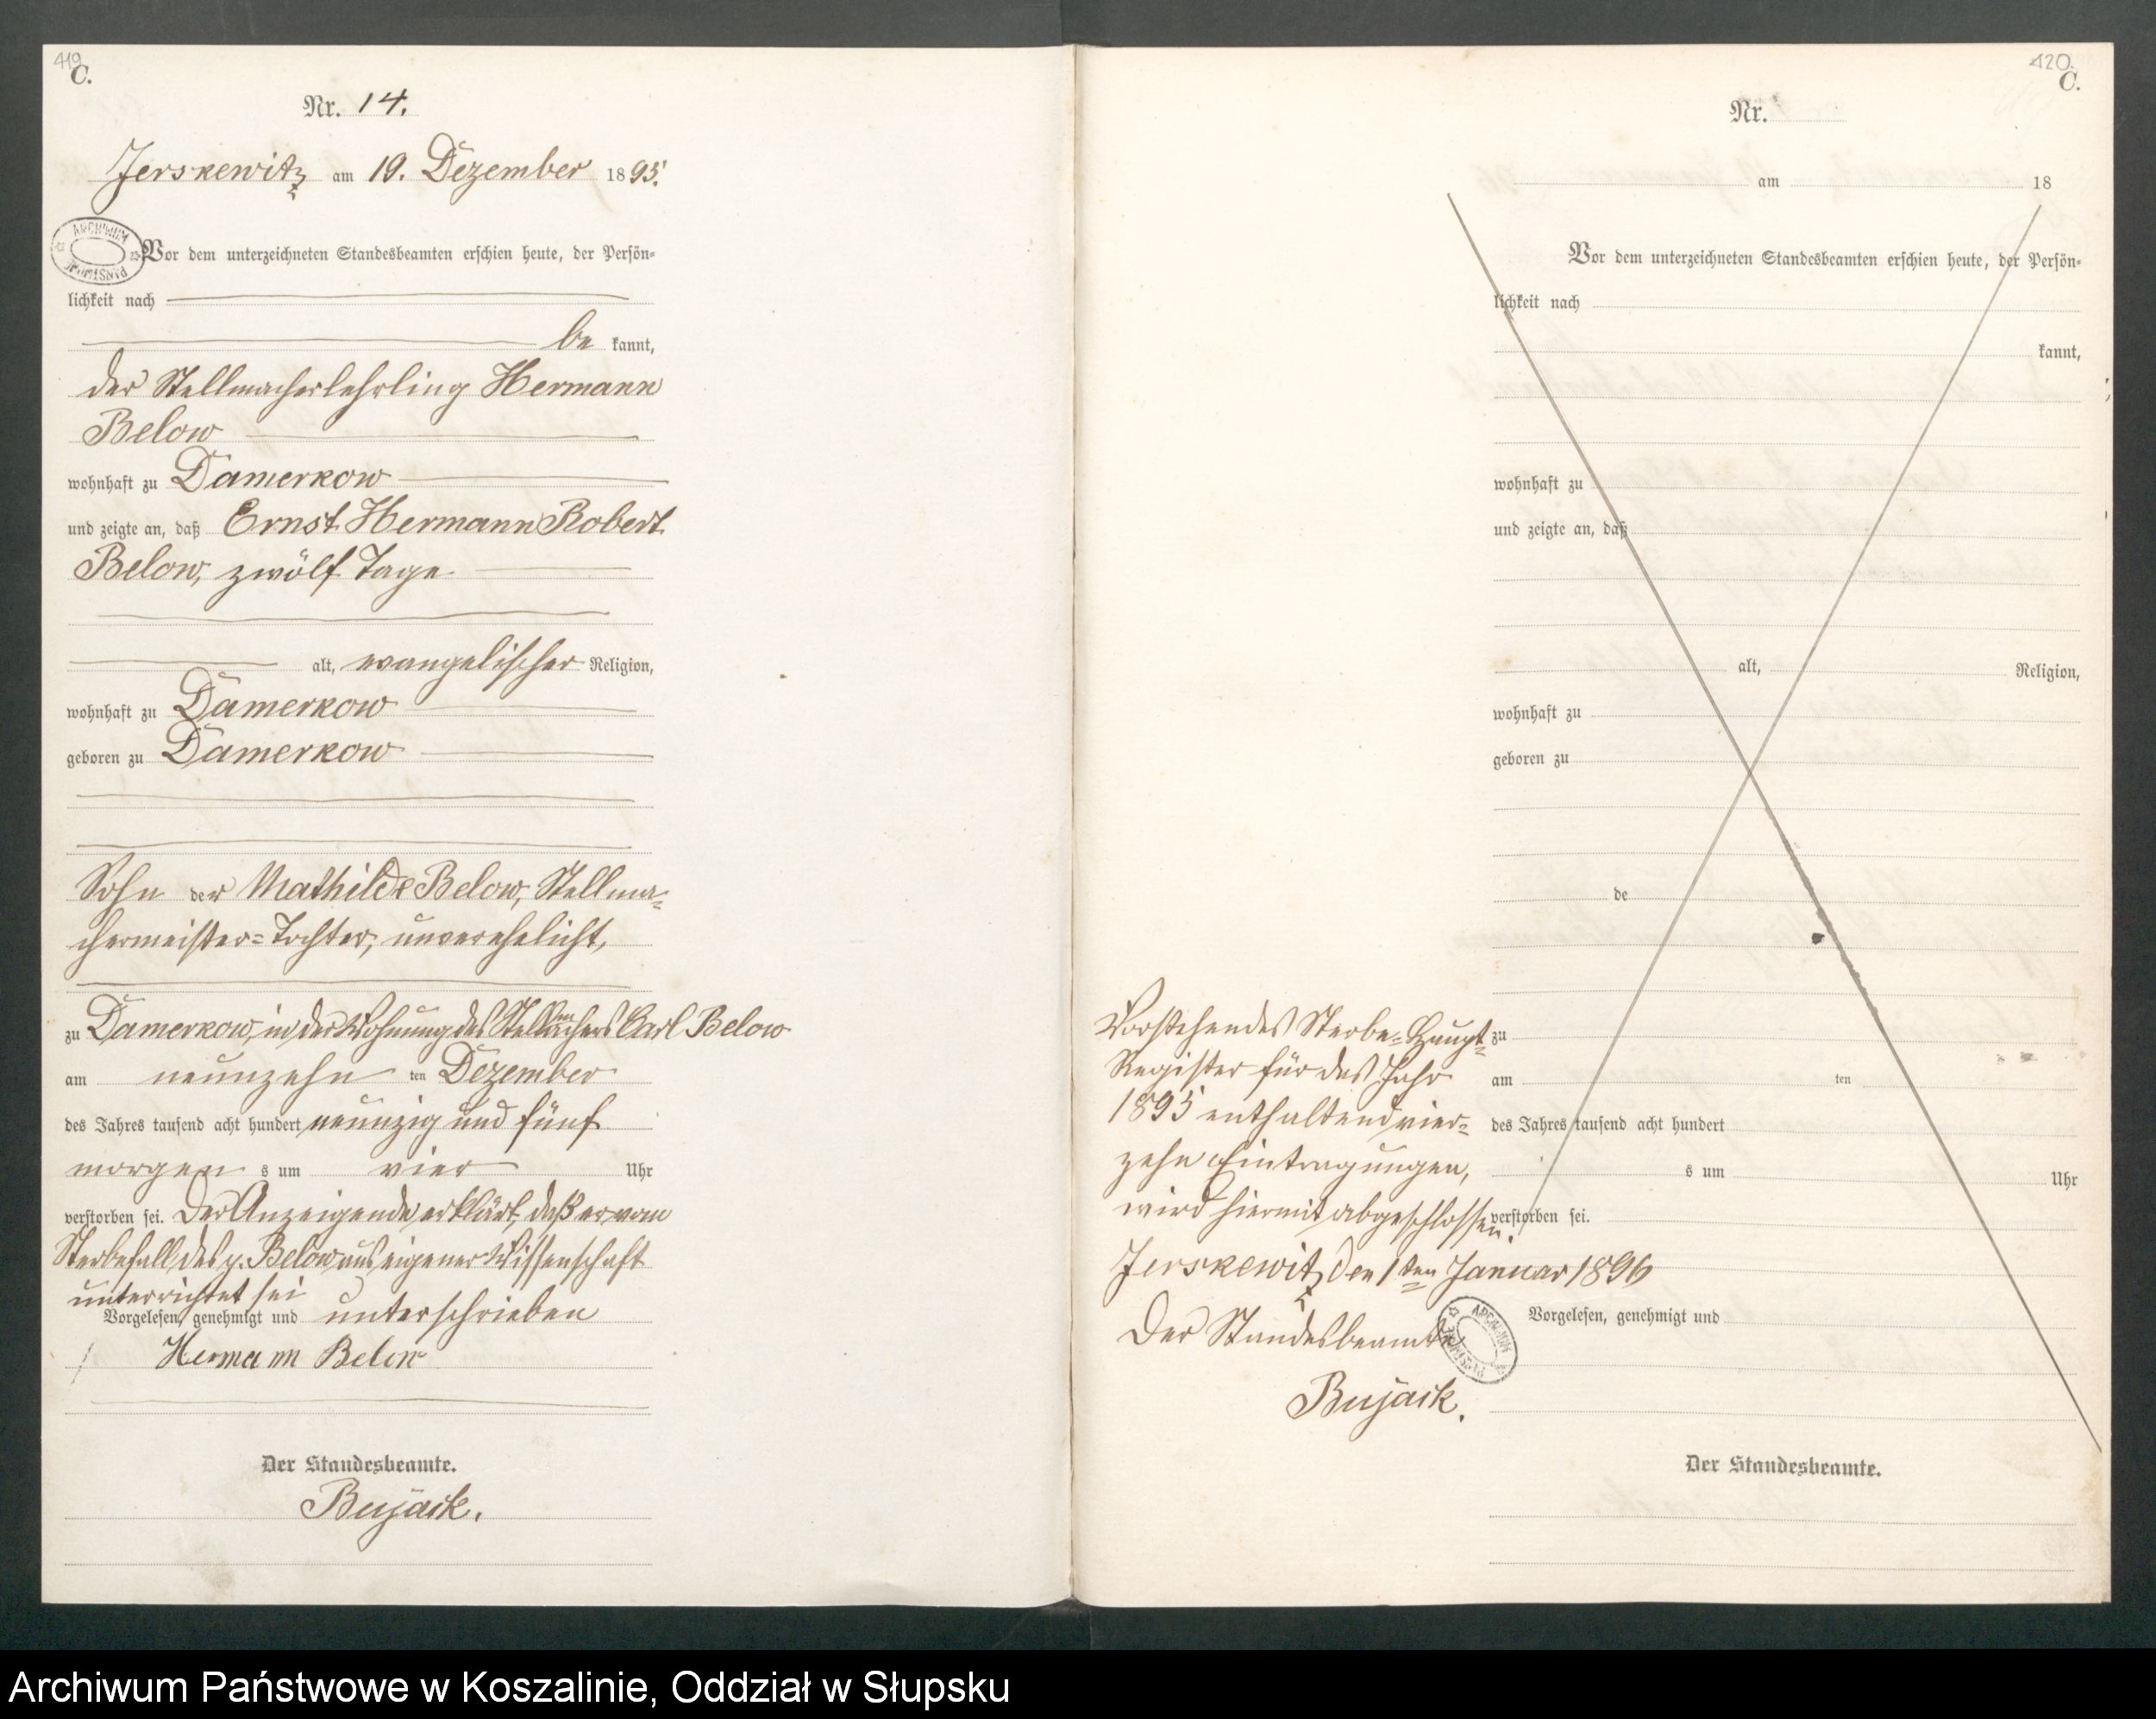 419
C.
Nr. 14.
Jerskewitz am 19. Dezember 1895.
ARCHIWUM PAŃSTWOWE
Vor dem unterzeichneten Standesbeamten erschien heute, der Persön-
lichkeit nach
be kannt,
der Stellmacherlehrling Hermann
Below
wohnhaft zu Damerkow
und zeigte an, daß Ernst Hermann Robert
Below, zwölf Tage
alt, evangelischer Religion,
wohnhaft zu Damerkow
geboren zu Damerkow
Sohn der Mathilde Below, Stellma-
chermeister-Tochter, unverehelicht,
zu Damerkow, in der Wohnung des Stellmachers Carl Below
am neunzehn ten Dezember
des Jahres tausend acht hundert neunzig und fünf
morgen s um vier Uhr
verstorben sei. Der Anzeigende erklärt, daß er vom
Sterbefall des p. Below aus eigener Wissenschaft
unterrichtet sei
Vorgelesen, genehmigt und unterschrieben
Hermann Below
Der Standesbeamte.
Bujack.
420
C.
Nr.
am 18
Vor dem unterzeichneten Standesbeamten erschien heute, der Persön-
lichkeit nach
kannt,
wohnhaft zu
und zeigte an, daß
alt, Religion,
wohnhaft zu
geboren zu
de
zu
am ten
des Jahres tausend acht hundert
s um Uhr
verstorben sei.
Vorgelesen, genehmigt und
Der Standesbeamte.
Vorstehendes Sterbe-Haupt-
Register für das Jahr
1895 enthaltend vier-
zehn Eintragungen,
wird hiermit abgeschlossen.
Jerskewitz den 1ten Januar 1896
Der Standesbeamte
ARCHIWUM PAŃSTWOWE
Bujack.
Archiwum Państwowe w Koszalinie, Oddział w Słupsku